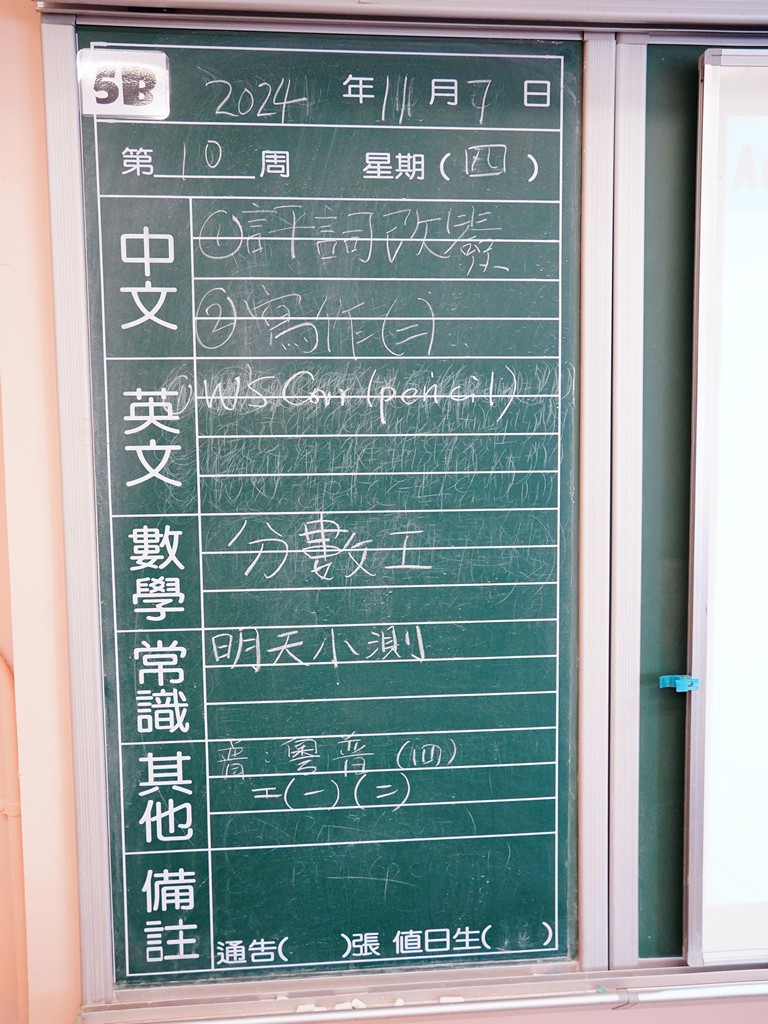 5B 2024 年 11 月 7 日
第 10 周 星期(四)
中文
①評詞改簽
②寫作(二)
英文
① WS Corr (pencil)
數學
分數工
常識
明天小測
其他
普:粵普(四)
工(一)(二)
備註
通告( )張 值日生( )